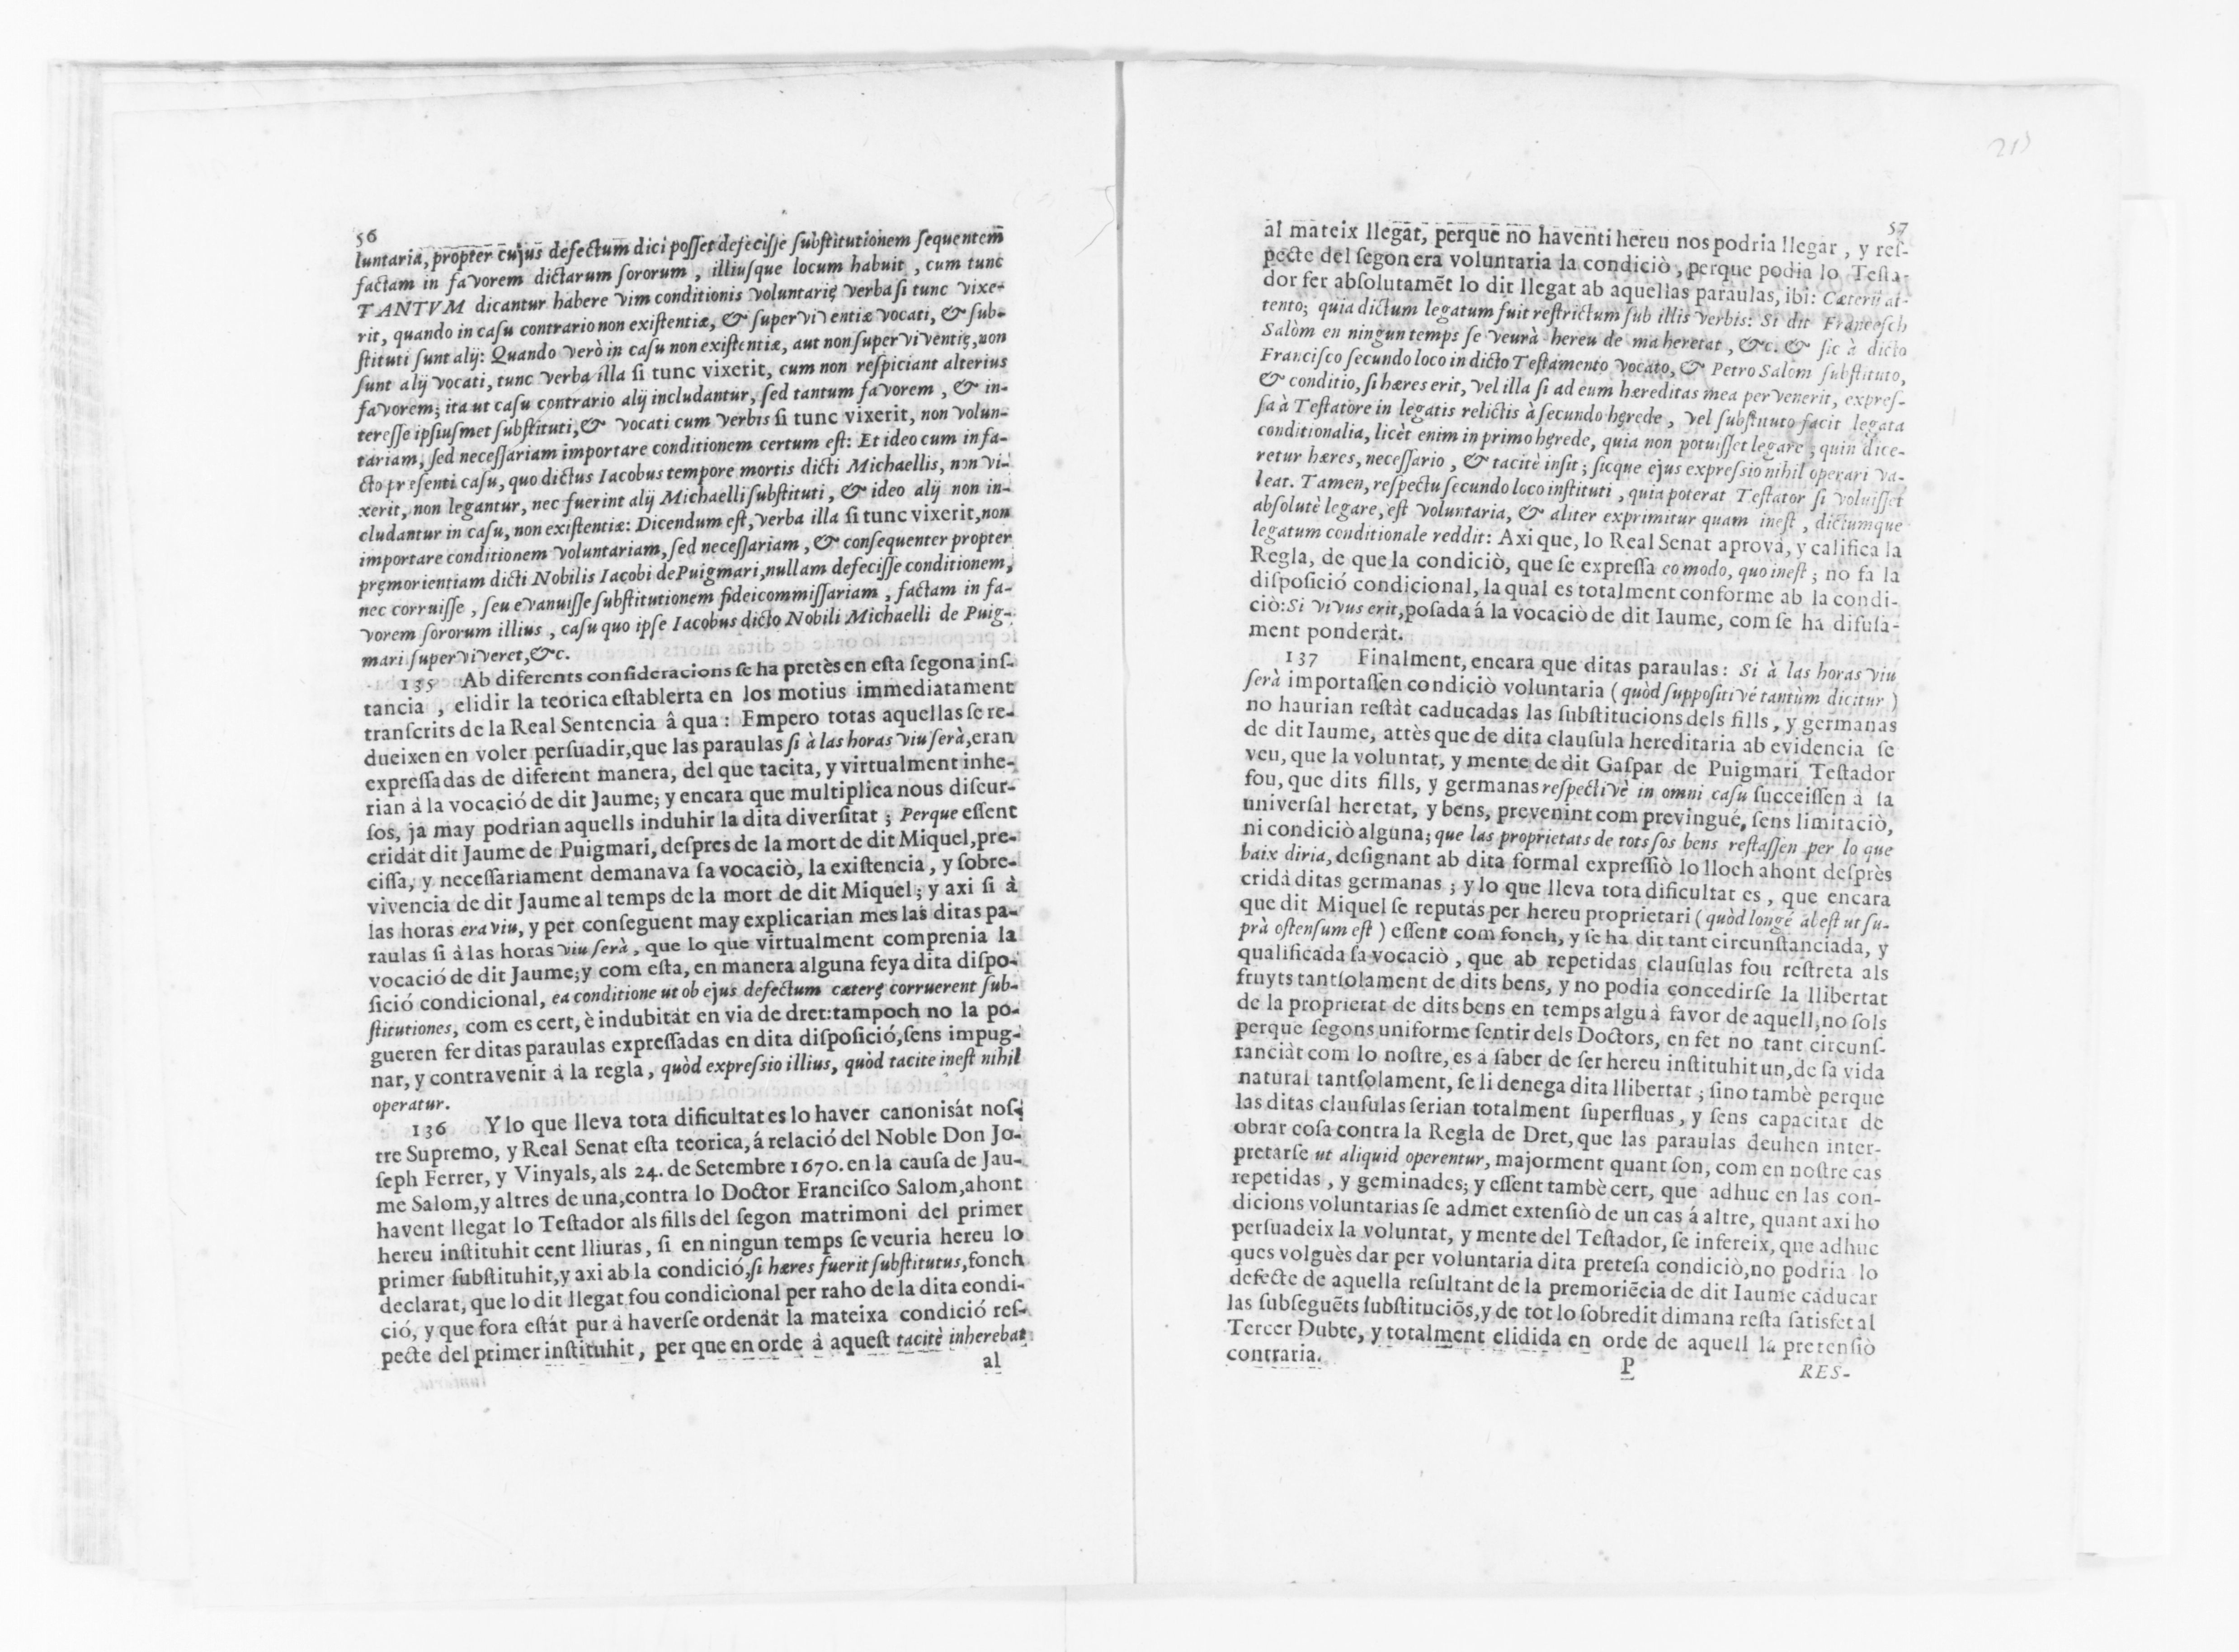 56
luntaria, propter cujus defectum dici posset defecisse substitutionem sequentem
factam in favorem dictarum sororum, illiusque locum habuit, cum tunc
TANTVM dicantur habere vim conditionis voluntarię verba si tunc vixe-
rit, quando in casu contrario non existentiæ, & superviventiæ vocati, & sub-
stituti sunt alij: Quando verò in casu non existentiæ, aut non superviventię, non
sunt alij vocati, tunc verba illa si tunc vixerit, cum non respiciant alterius
favorem; ita ut casu contrario alij includantur, sed tantum favorem, & in-
teresse ipsiusmet substituti, & vocati cum verbis si tunc vixerit, non volun-
tariam, sed necessariam importare conditionem certum est: Et ideo cum in fa-
cto presenti casu, quo dictus Iacobus tempore mortis dicti Michaellis, non vi-
xerit, non legantur, nec fuerint alij Michaelli substituti, & ideo alij non in-
cludantur in casu, non existentiæ: Dicendum est, verba illa si tunc vixerit, non
importare conditionem voluntariam, sed necessariam, & consequenter propter
pręmorientiam dicti Nobilis Iacobi de Puigmari, nullam defecisse conditionem,
nec corruisse, seu evanuisse substitutionem fideicommissariam, factam in fa-
vorem sororum illius, casu quo ipse Iacobus dicto Nobili Michaelli de Puig-
mari superviveret, &c.
135 Ab diferents consideracions se ha pretès en esta segona ins-
tancia, elidir la teorica establerta en los motius immediatament
transcrits de la Real Sentencia â qua: Empero totas aquellas se re-
dueixen en voler persuadir, que las paraulas si à las horas viu serà, eran
expressadas de diferent manera, del que tacita, y virtualment inhe-
rian à la vocació de dit Jaume; y encara que multiplica nous discur-
sos, ja may podrian aquells induhir la dita diversitat; Perque essent
cridàt dit Jaume de Puigmari, despres de la mort de dit Miquel, pre-
cissa, y necessariament demanava sa vocaciò, la existencia, y sobre-
vivencia de dit Jaume al temps de la mort de dit Miquel; y axi si à
las horas era viu, y per conseguent may explicarian mes las ditas pa-
raulas si à las horas viu serà, que lo que virtualment comprenia la
vocació de dit Jaume; y com esta, en manera alguna feya dita dispo-
sició condicional, ea conditione ut ob ejus defectum cæterę corruerent sub-
stitutiones, com es cert, è indubitàt en via de dret: tampoch no la po-
gueren fer ditas paraulas expressadas en dita disposició, sens impug-
nar, y contravenir à la regla, quòd expressio illius, quòd tacite inest nihil
operatur.
136 Y lo que lleva tota dificultat es lo haver canonisát nos-
tre Supremo, y Real Senat esta teorica, á relació del Noble Don Jo-
seph Ferrer, y Vinyals, als 24. de Setembre 1670. en la causa de Jau-
me Salom, y altres de una, contra lo Doctor Francisco Salom, ahont
havent llegat lo Testador als fills del segon matrimoni del primer
hereu instituhit cent lliuras, si en ningun temps se veuria hereu lo
primer substituhit, y axi ab la condició, si hæres fuerit substitutus, fonch
declarat, que lo dit llegat fou condicional per raho de la dita condi-
ció, y que fora estát pur à haverse ordenàt la mateixa condició res-
pecte del primer instituhit, per que en orde à aquest tacitè inherebat
al
57
al mateix llegàt, perque no haventi hereu nos podria llegar, y res-
pecte del segon era voluntaria la condiciò, perque podia lo Testa-
dor fer absolutamēt lo dit llegat ab aquellas paraulas, ibi: Cæterù at-
tento; quia dictum legatum fuit restrictum sub illis verbis: Si dit Francesch
Salòm en ningun temps se veurà hereu de ma heretat, &c. & sic à dicto
Francisco secundo loco in dicto Testamento vocato, & Petro Salom substituto,
& conditio, si hæres erit, vel illa si ad eum hæreditas mea pervenerit, expres-
sa à Testatore in legatis relictis à secundo hęrede, vel substituto facit legata
conditionalia, licèt enim in primo hęrede, quia non potuisset legare, quin dice-
retur hæres, necessario, & tacitè insit; sicque ejus expressio nihil operari va-
leat. Tamen, respectu secundo loco instituti, quia poterat Testator si voluisset
absolutè legare, est voluntaria, & aliter exprimitur quam inest, dictumque
legatum conditionale reddit: Axi que, lo Real Senat aprova, y califica la
Regla, de que la condiciò, que se expressa eo modo, quo inest; no fa la
disposició condicional, la qual es totalment conforme ab la condi-
ciò: Si vivus erit, posada á la vocaciò de dit Iaume, com se ha difusa-
ment ponderàt.
137 Finalment, encara que ditas paraulas: Si à las horas viu
serà importassen condiciò voluntaria (quòd suppositivè tantùm dicitur)
no haurian restàt caducadas las substitucions dels fills, y germanas
de dit Iaume, attès que de dita clausula hereditaria ab evidencia se
veu, que la voluntat, y mente de dit Gaspar de Puigmari Testador
fou, que dits fills, y germanas respectivè in omni casu succeissen à sa
universal heretat, y bens, prevenint com previngué, sens limitaciò,
ni condiciò alguna; que las proprietats de tots sos bens restassen per lo que
baix diria, designant ab dita formal expressiò lo lloch ahont desprès
cridà ditas germanas; y lo que lleva tota dificultat es, que encara
que dit Miquel se reputás per hereu proprietari (quòd longè abest ut su-
prà ostensum est) essent com fonch, y se ha dit tant circunstanciada, y
qualificada sa vocaciò, que ab repetidas clausulas fou restreta als
fruyts tantsolament de dits bens, y no podia concedirse la llibertat
de la proprietat de dits bens en temps algu à favor de aquell, no sols
perque segons uniforme sentir dels Doctors, en fet no tant circuns-
tanciàt com lo nostre, es à saber de ser hereu instituhit un, de sa vida
natural tantsolament, se li denega dita llibertat; sino tambè perque
las ditas clausulas serian totalment superfluas, y sens capacitat de
obrar cosa contra la Regla de Dret, que las paraulas deuhen inter-
pretarse ut aliquid operentur, majorment quant son, com en nostre cas
repetidas, y geminades; y essent tambè cert, que adhuc en las con-
dicions voluntarias se admet extensiò de un cas á altre, quant axi ho
persuadeix la voluntat, y mente del Testador, se infereix, que adhuc
ques volguès dar per voluntaria dita pretesa condiciò, no podria lo
defecte de aquella resultant de la premoriēcia de dit Iaume caducar
las subseguēts substituciōs, y de tot lo sobredit dimana resta satisfet al
Tercer Dubte, y totalment elidida en orde de aquell la pretensiò
contraria.
P
RES-